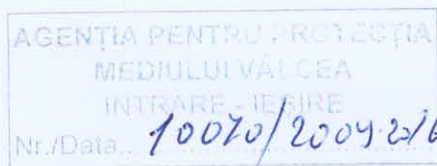 AGENȚIA PENTRU PROTECȚIA
MEDIULUI VÂLCEA
INTRARE - IEȘIRE
Nr./Data 10070/2009.2016